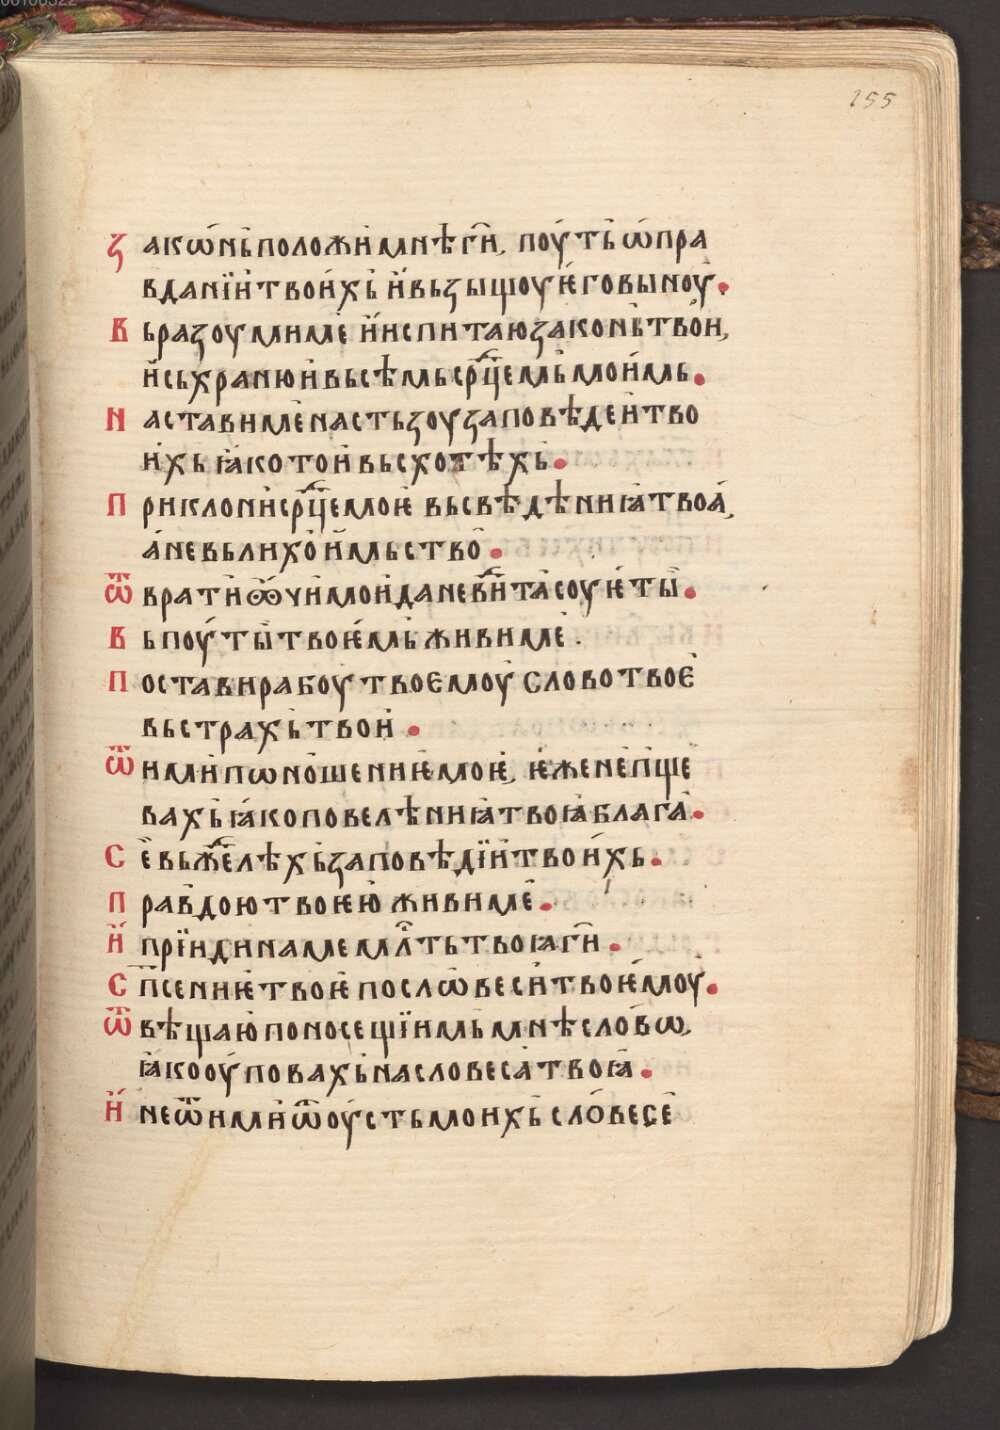 155
ꙁакѡ́нь положи́ мнѣ гⷭ҇и, поу́ть ѡ҆пра
вданїи твои́хь и҆ вьꙁыщоу ѥ҆го вы́ноу.
Вьраꙁоумиме и҆ и҆спитаю ꙁаконь твои,
и҆ сьхраню и҆ вьсѣмь срⷣцемь мои́мь.
Наставиме на стьꙁоу ꙁаповѣдеи тво
и́хь ꙗко тои вьсхотѣхь.
Приклони срⷣце моѥ вьсвѣдѣниꙗ твоꙗ,
а҆ не вьлихои́мьство.
Ѿврати ѻчи мои да не виⷣта соуѥты.
Вь поу́ты твоѥ́мь живиме.
Постави рабоу твоемоу слово твое
вьстрахь твои.
Ѿими пѡношениѥ моѥ, ѥже непще
вахь ꙗко повелѣниꙗ твоꙗ блага.
Се вьжелѣхь ꙁаповѣдїи твои́хь.
Правдою твоѥю живиме.
И҆ прїиди на ме млⷭ҇ть твоꙗ гⷭ҇и.
Сп҃сениѥ твоѥ пословѡвеси твоѥ́моу.
Ѿвѣщаю поносещїимь мнѣ словѡ,
ꙗко оу́повахь на словеса твоꙗ.
И҆ не ѿими ѿ оу́сть моихь словесе